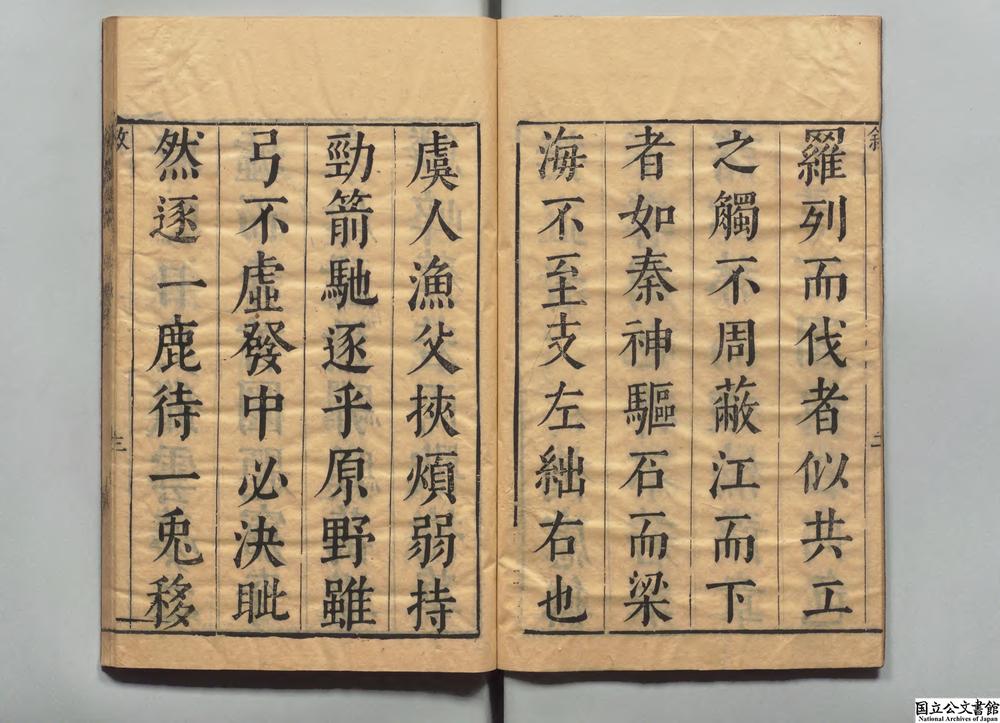 羅列而伐者似共工
之觸不周蔽江而下
者如秦神驅石而梁
海不至支左絀右也
虞人漁父挾煩弱持
勁箭馳逐乎原野雖
弓不虛發中必決眦
然逐一鹿待一兎移
敘
二
三
国立公文書館
National Archives of Japan